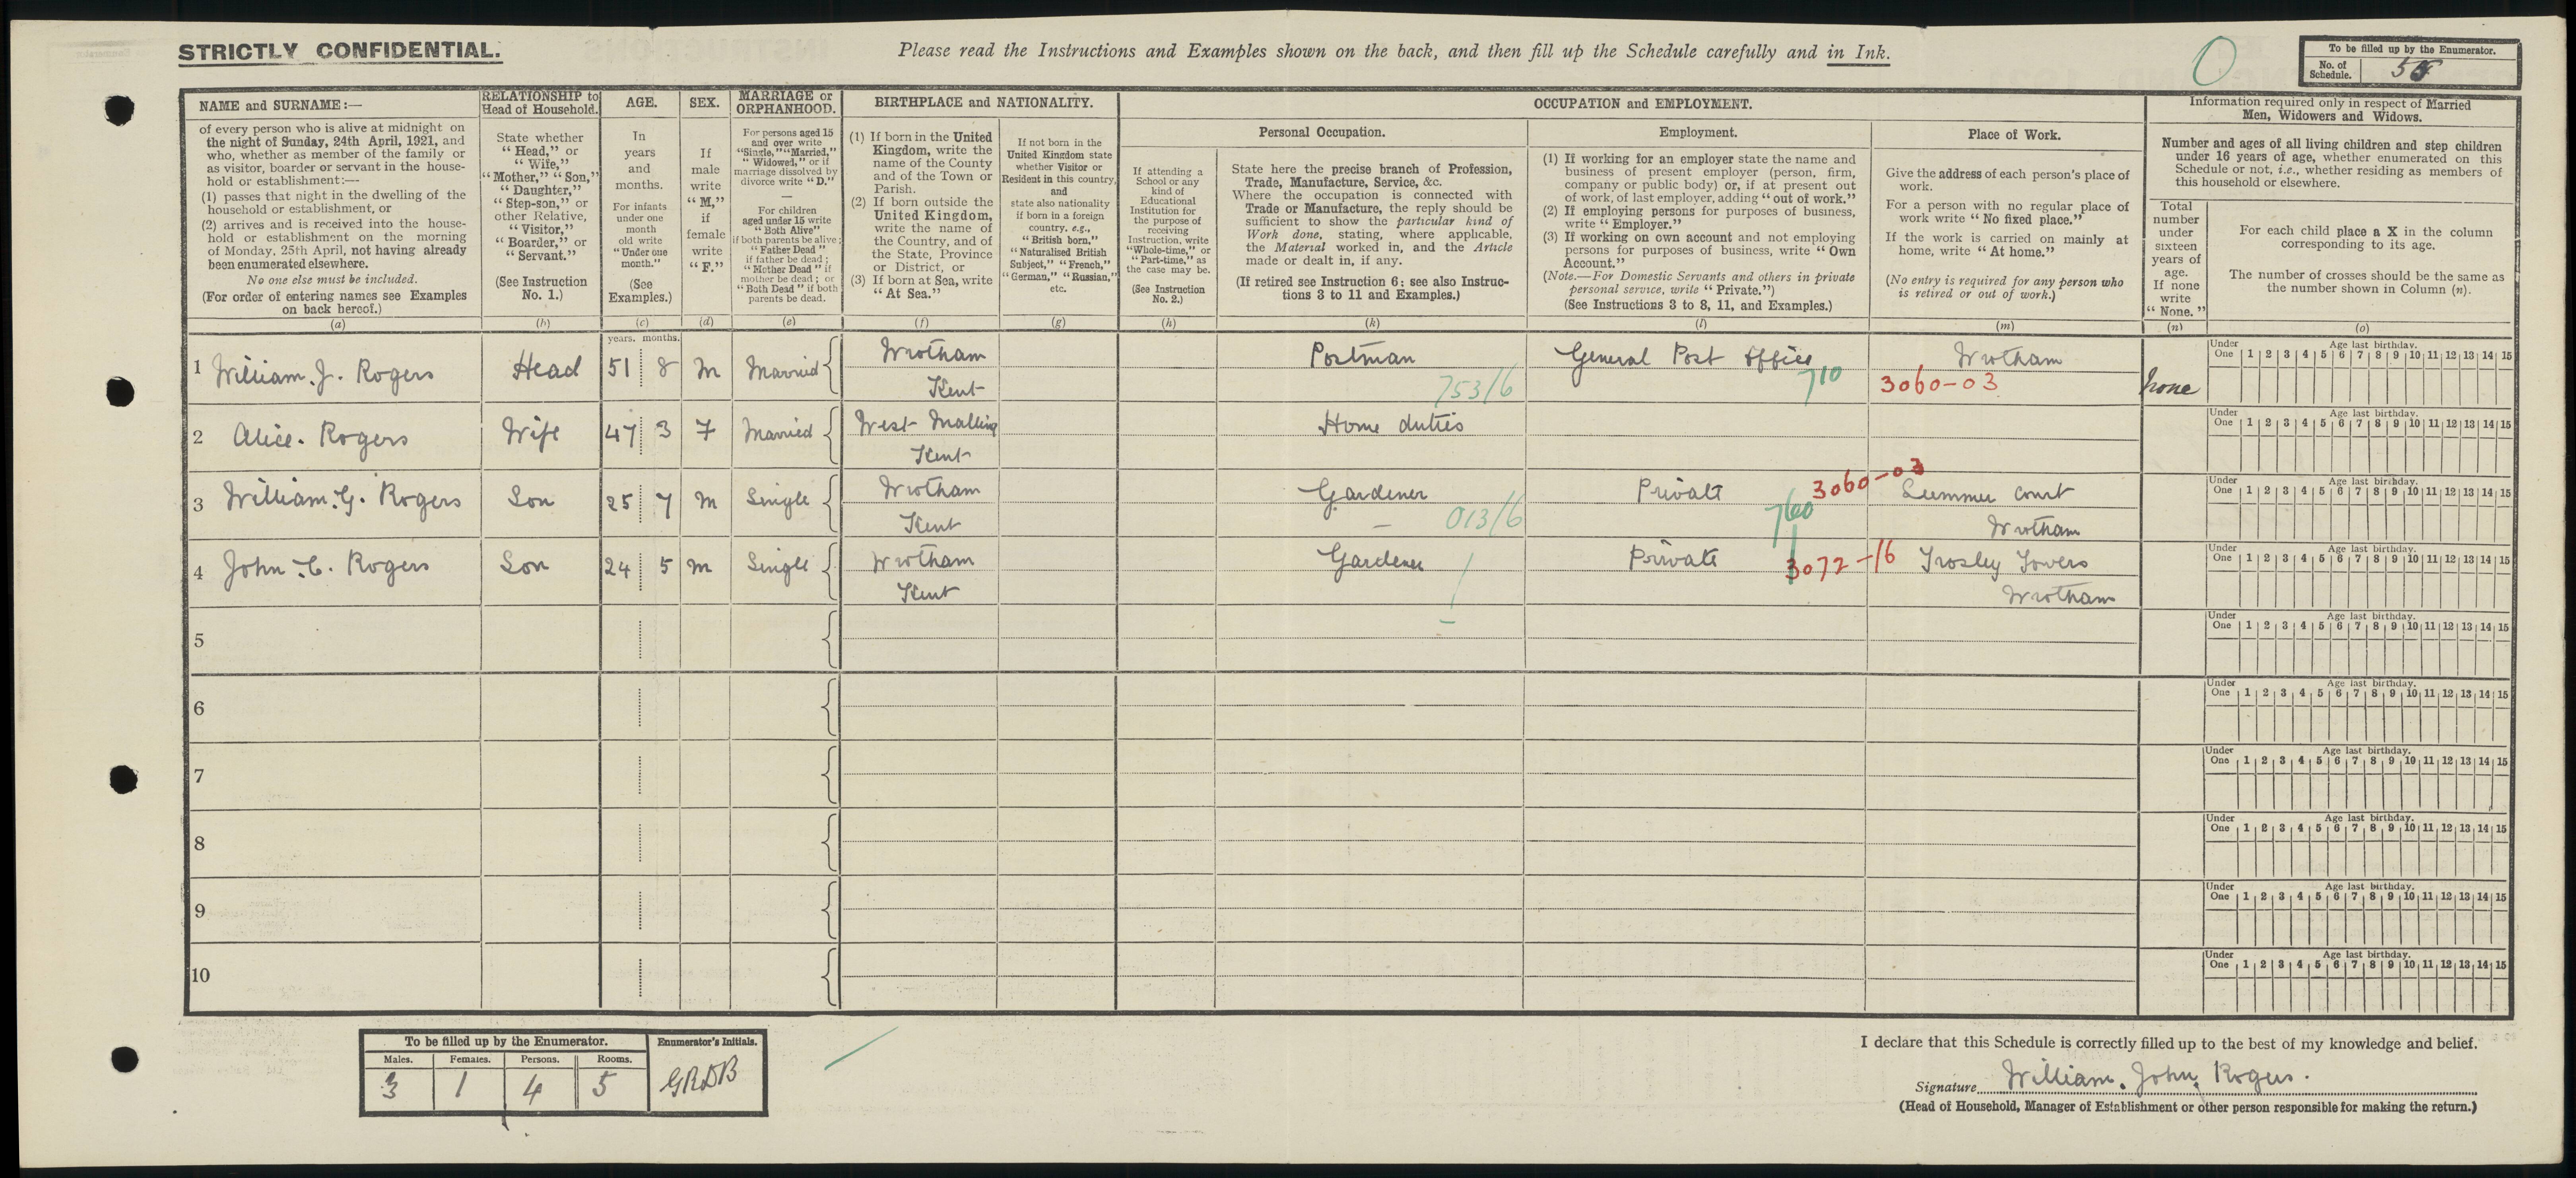 STRICTLY CONFIDENTIAL.
Please read the Instructions and Examples shown on the back, and then fill up the Schedule carefully and in Ink.
0
To be filled up by the Enumerator.
No. of Schedule.
NAME and SURNAME:—
of every person who is alive at midnight on
the night of Sunday, 24th April, 1921, and
who, whether as member of the family or
as visitor, boarder or servant in the house-
hold or establishment:—
(1) passes that night in the dwelling of the
household or establishment, or
(2) arrives and is received into the house-
hold or establishment on the morning
of Monday, 25th April, not having already
been enumerated elsewhere.
No one else must be included.
(For order of entering names see Examples
on back hereof.)
(a)
RELATIONSHIP to
Head of Household.
State whether
"Head," or
"Wife,"
"Mother," "Son,"
"Daughter,"
"Step-son," or
other Relative,
"Visitor,"
"Boarder," or
"Servant."
(See Instruction
No. 1.)
(b)
AGE.
In
years
and
months.
For infants
under one
month
old write
"Under one
month."
(See
Examples.)
(c)
SEX.
If
male
write
"M,"
if
female
write
"F."
(d)
MARRIAGE or
ORPHANHOOD.
For persons aged 15
and over write
"Single," "Married,"
"Widowed," or if
marriage dissolved by
divorce write "D."
—
For children
aged under 15 write
"Both Alive"
if both parents be alive;
"Father Dead"
if father be dead;
"Mother Dead" if
mother be dead; or
"Both Dead" if both
parents be dead.
(e)
BIRTHPLACE and NATIONALITY.
(1) If born in the United
Kingdom, write the
name of the County
and of the Town or
Parish.
(2) If born outside the
United Kingdom,
write the name of
the Country, and of
the State, Province
or District, or
(3) If born at Sea, write
"At Sea."
(f)
If not born in the
United Kingdom state
whether Visitor or
Resident in this country,
and
state also nationality
if born in a foreign
country, e.g.,
"British born,"
"Naturalised British
Subject," "French,"
"German," "Russian,"
etc.
(g)
OCCUPATION and EMPLOYMENT.
Personal Occupation.
If attending a
School or any
kind of
Educational
Institution for
the purpose of
receiving
Instruction, write
"Whole-time," or
"Part-time," as
the case may be.
(See Instruction
No. 2.)
(h)
State here the precise branch of Profession,
Trade, Manufacture, Service, &c.
Where the occupation is connected with
Trade or Manufacture, the reply should be
sufficient to show the particular kind of
Work done, stating, where applicable,
the Material worked in, and the Article
made or dealt in, if any.
(If retired see Instruction 6: see also Instruc-
tions 3 to 11 and Examples.)
(k)
Employment.
(1) If working for an employer state the name and
business of present employer (person, firm,
company or public body) or, if at present out
of work, of last employer, adding "out of work."
(2) If employing persons for purposes of business,
write "Employer."
(3) If working on own account and not employing
persons for purposes of business, write "Own
Account."
(Note.—For Domestic Servants and others in private
personal service, write "Private.")
(See Instructions 3 to 8, 11, and Examples.)
(l)
Place of Work.
Give the address of each person's place of
work.
For a person with no regular place of
work write "No fixed place."
If the work is carried on mainly at
home, write "At home."
(No entry is required for any person who
is retired or out of work.)
(m)
Information required only in respect of Married
Men, Widowers and Widows.
Number and ages of all living children and step children
under 16 years of age, whether enumerated on this
Schedule or not, i.e., whether residing as members of
this household or elsewhere.
Total
number
under
sixteen
years of
age.
If none
write
"None."
(n)
For each child place a X in the column
corresponding to its age.
The number of crosses should be the same as
the number shown in Column (n).
(o)
years. months.
1 William. J. Rogers Head 51 8 M Married Wrotham Postman General Post Office Wrotham
Kent 753/6 710 3060-03 none
Under One Age last birthday. 1 2 3 4 5 6 7 8 9 10 11 12 13 14 15
2 Alice. Rogers Wife 47 3 F Married West Malling Home duties
Kent
Under One Age last birthday. 1 2 3 4 5 6 7 8 9 10 11 12 13 14 15
3 William. G. Rogers Son 25 7 M Single Wrotham Gardener Private 3060-03 Summer Court
Kent — 013/6 760 Wrotham
Under One Age last birthday. 1 2 3 4 5 6 7 8 9 10 11 12 13 14 15
4 John. C. Rogers Son 24 5 M Single Wrotham Gardener Private 3072-16 Trosley Towers
Kent Wrotham
Under One Age last birthday. 1 2 3 4 5 6 7 8 9 10 11 12 13 14 15
5
Under One Age last birthday. 1 2 3 4 5 6 7 8 9 10 11 12 13 14 15
6
Under One Age last birthday. 1 2 3 4 5 6 7 8 9 10 11 12 13 14 15
7
Under One Age last birthday. 1 2 3 4 5 6 7 8 9 10 11 12 13 14 15
8
Under One Age last birthday. 1 2 3 4 5 6 7 8 9 10 11 12 13 14 15
9
Under One Age last birthday. 1 2 3 4 5 6 7 8 9 10 11 12 13 14 15
10
Under One Age last birthday. 1 2 3 4 5 6 7 8 9 10 11 12 13 14 15
To be filled up by the Enumerator.
Males. Females. Persons. Rooms.
3 1 4 5
Enumerator's Initials.
GRDB
I declare that this Schedule is correctly filled up to the best of my knowledge and belief.
Signature William. John. Rogers.
(Head of Household, Manager of Establishment or other person responsible for making the return.)